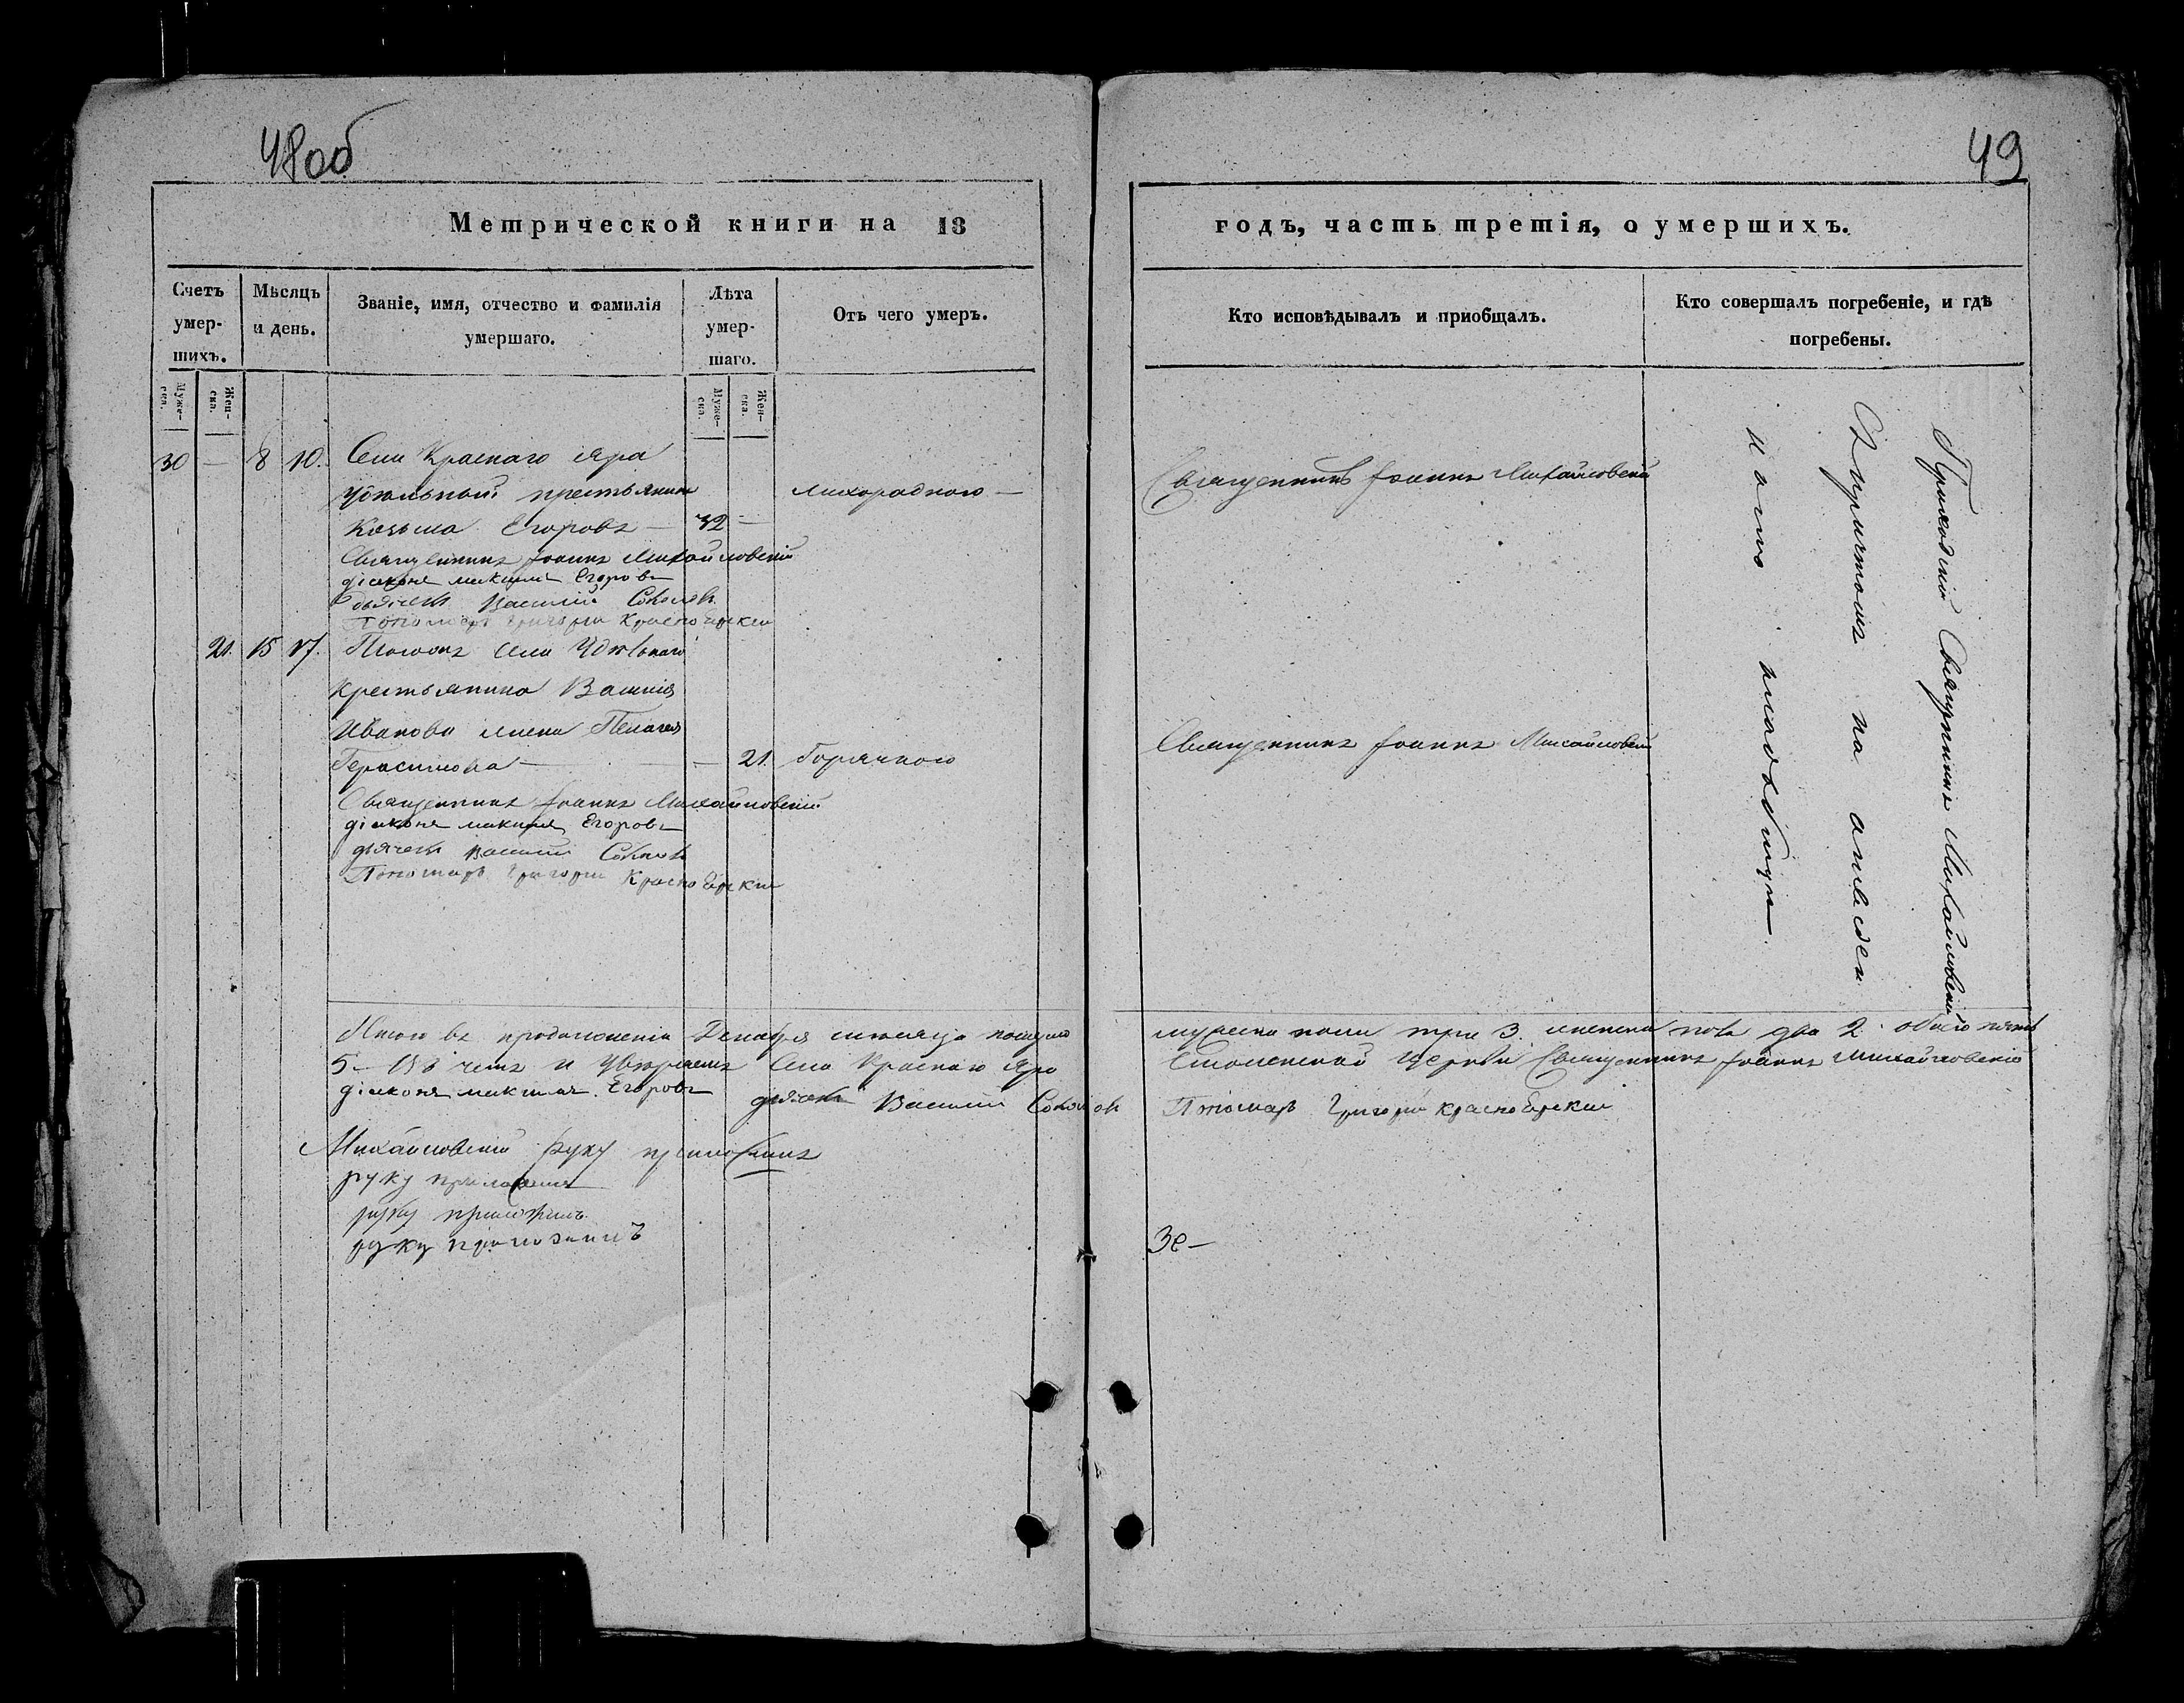 48об
49
Метрической книги на 18
годъ, часть третія, о умершихъ.
Счетъ умер-
шихъ.
Мѣсяцъ
и день.
Званіе, имя, отчество и фамилія
умершаго.
Лѣта
умер-
шаго.
Отъ чего умеръ.
Кто исповѣдывалъ и приобщалъ.
Кто совершалъ погребеніе, и гдѣ
погребены.
Муже-
ска.
Жен-
ска.
Муже-
ска.
Жен-
ска.
30 — 8 10. Села Краснаго Яра
удѣльный крестьянинъ лихорадкою —
Козьма Егоровъ — 32 —
Священникъ Іоаннъ Михайловскій
діаконъ Максимъ Егоровъ
дьячекъ Василій Соколовъ
Пономарь Григорій Красноярскій
Священникъ Іоаннъ Михайловскій
21. 15 17. Тогожъ села Удѣльнаго
крестьянина Василія
Иванова жена Пелагея
Герасимова — — 21. Горячкою
Священникъ Іоаннъ Михайловскій
діаконъ Максимъ Егоровъ
дьячекъ Василій Соколовъ
Пономарь Григорій Красноярскій
Священникъ Іоаннъ Михайловскій
Приходскій Священникъ Михайловскій
съ причтомъ на
кладбищѣ
Итого въ продолженіи Декабря мѣсяца мужеска пола три 3. женска пола два 2. обоего пять
5 — Села Краснаго Яра Смоленской церкви Священникъ Іоаннъ Михайловскій
діаконъ Максимъ Егоровъ дьячекъ Василій Соколовъ Пономарь Григорій Красноярскій
Михайловскій руку приложилъ
руку приложилъ
руку приложилъ
руку приложилъ